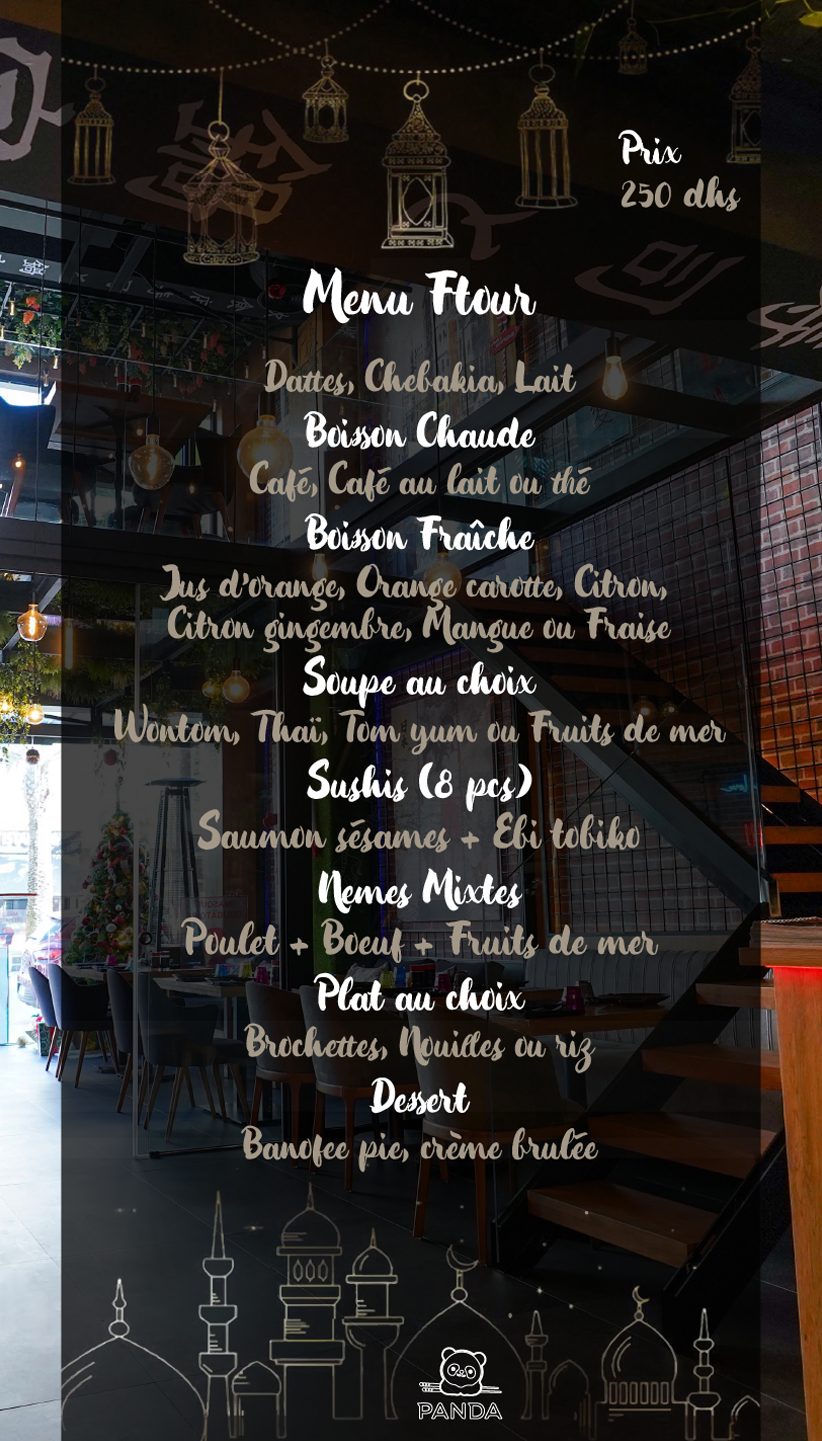 Prix
250 dhs
Menu Ftour
Dattes, Chebakia, Lait
Boisson Chaude
Café, Café au lait ou thé
Boisson Fraîche
Jus d'orange, Orange carotte, Citron,
Citron gingembre, Mangue ou Fraise
Soupe au choix
Wontom, Thaï, Tom yum ou Fruits de mer
Sushis (8 pcs)
Saumon sésames + Ebi tobiko
Nemes Mixtes
Poulet + Boeuf + Fruits de mer
Plat au choix
Brochettes, Nouilles ou riz
Dessert
Banofee pie, crème brulée
PANDA